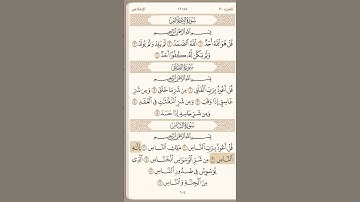 الجزء ٣٠
الإخلاص
سورة الإخلاص
بسم الله الرحمن الرحيم
قل هو الله أحد ١ الله الصمد ٢ لم يلد ولم يولد ٣
ولم يكن له كفوا أحد ٤
سورة الفلق
بسم الله الرحمن الرحيم
قل أعوذ برب الفلق ١ من شر ما خلق ٢ ومن شر
غاسق إذا وقب ٣ ومن شر النفاثات في العقد ٤
ومن شر حاسد إذا حسد ٥
سورة الناس
بسم الله الرحمن الرحيم
قل أعوذ برب الناس ١ ملك الناس ٢ إله
الناس ٣ من شر الوسواس الخناس ٤ الذي
يوسوس في صدور الناس ٥
من الجنة والناس ٦
٦٠٤